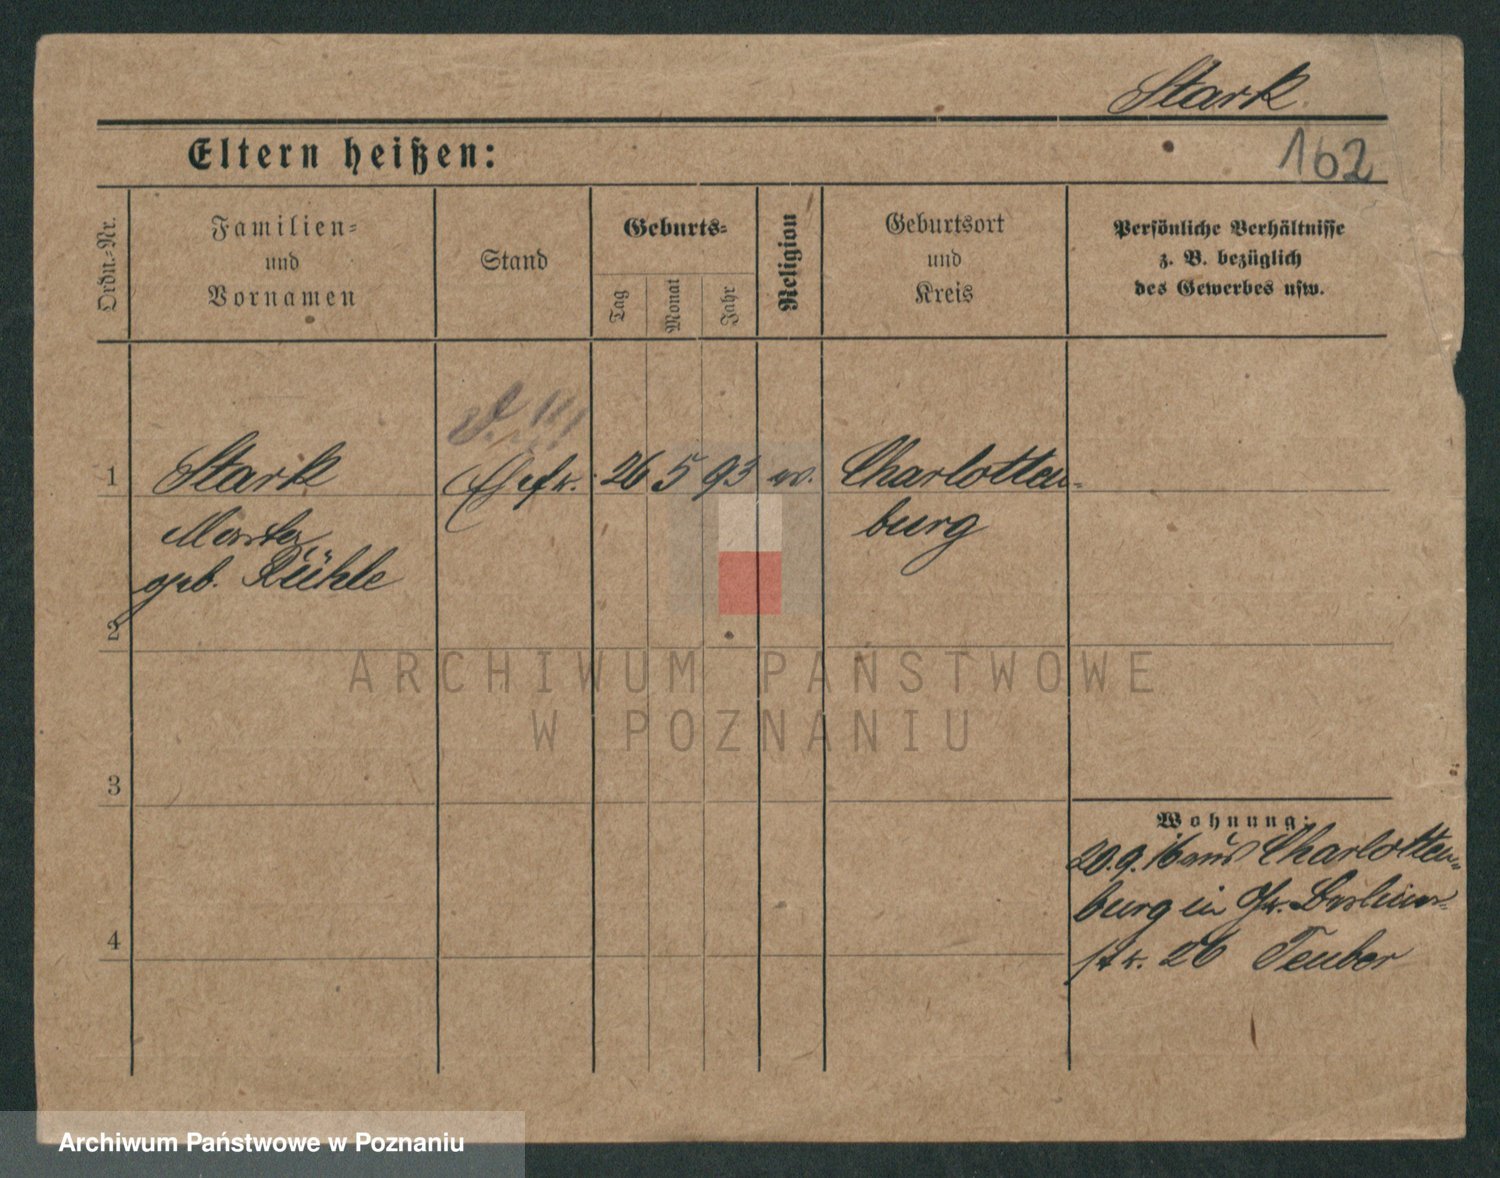 Stark
162
Eltern heißen:
Ordn.-Nr.
Familien-
und
Vornamen
Stand
Geburts-
Tag
Monat
Jahr
Religion
Geburtsort
und
Kreis
Persönliche Verhältnisse
z. B. bezüglich
des Gewerbes usw.
1 Stark Ehefr. 26 5 93 ev. Charlotten-
burg
Marta
geb. Rühle
2
ARCHIWUM PAŃSTWOWE
W POZNANIU
3
Wohnung:
20.9.16 aus Charlotten-
burg in Gr. Berliner-
4
str. 26 Teuber
Archiwum Państwowe w Poznaniu